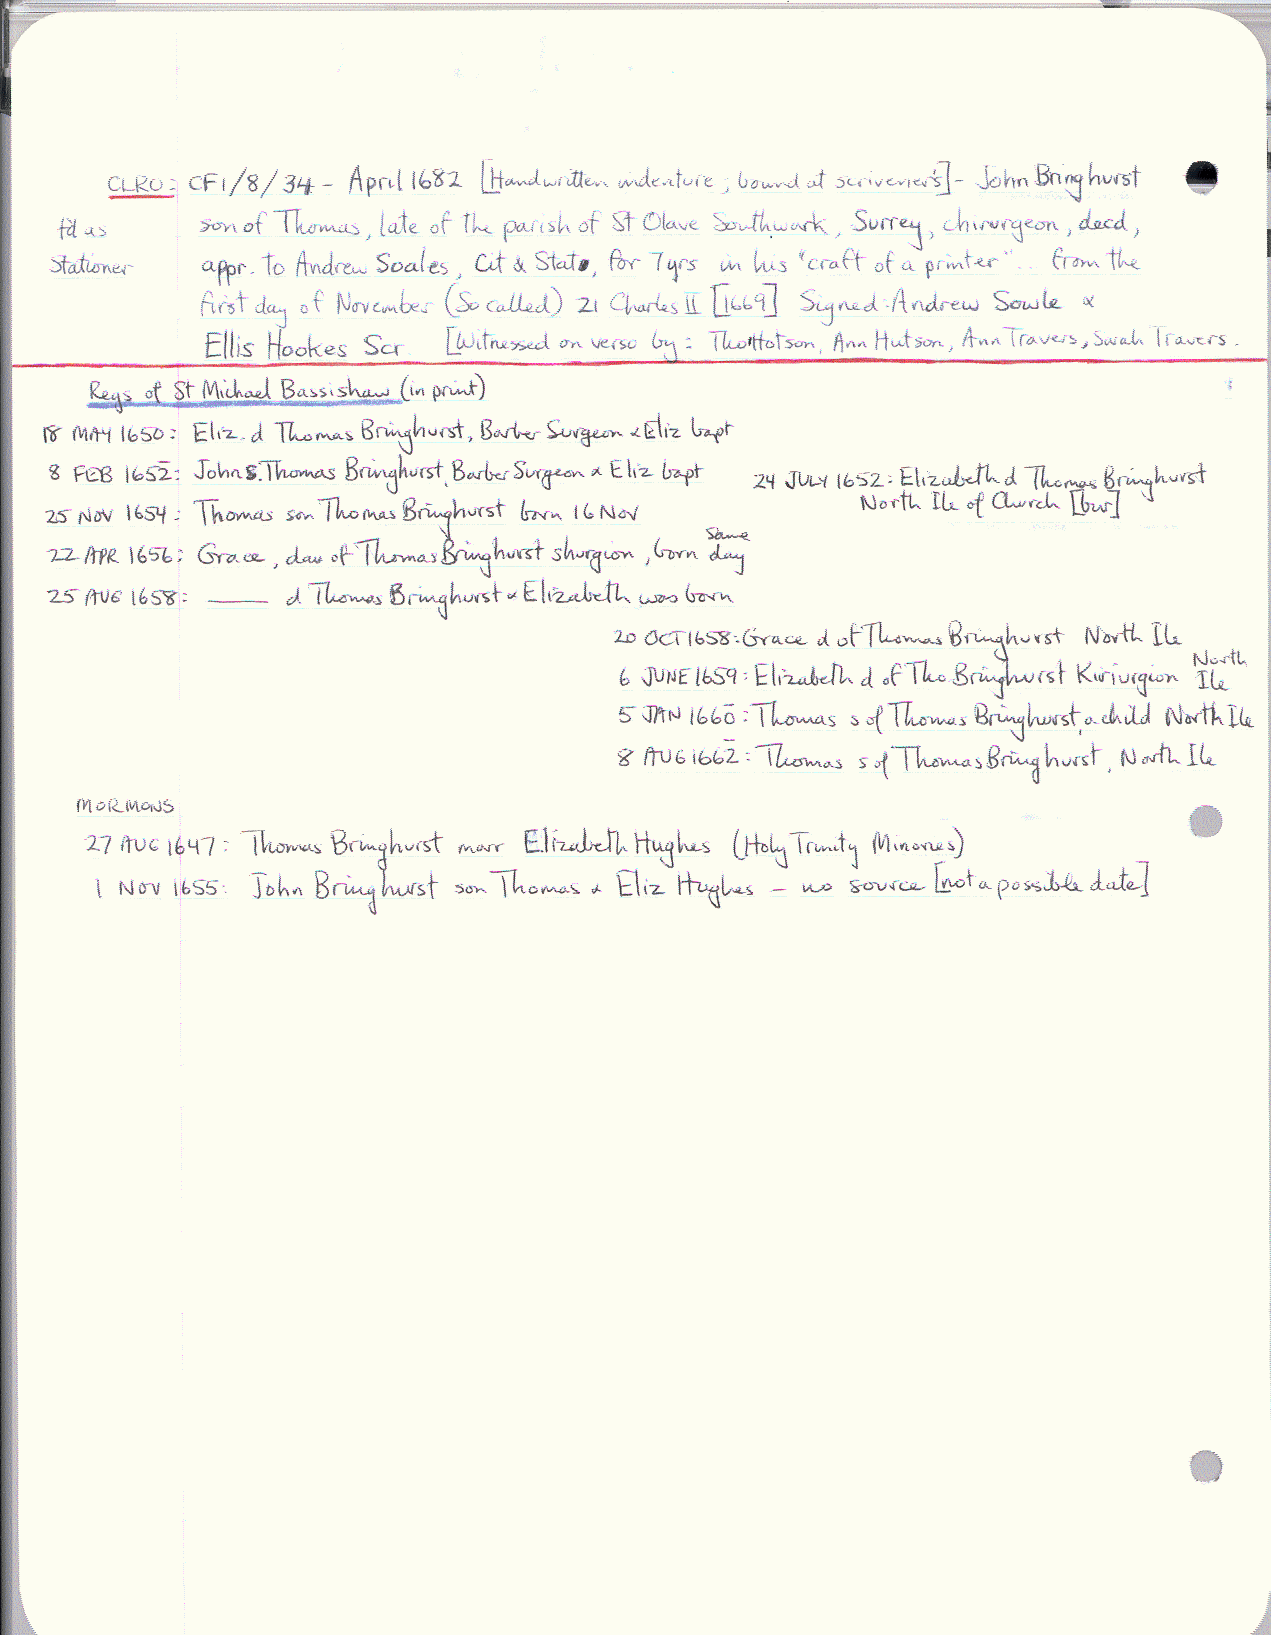 CLRO: CF1/8/34 - April 1682 [Handwritten indenture; bound at scrivener's] - John Bringhurst
fd as son of Thomas, late of the parish of St Olave Southwark, Surrey, chirurgeon, decd,
Stationer appr. to Andrew Soales, Cit & Stat, for 7 yrs in his "craft of a printer"... from the
first day of November (So called) 21 Charles II [1669] Signed: Andrew Sowle &
Ellis Hookes Scr [Witnessed on verso by: Tho Hotson, Ann Hutson, Ann Travers, Sarah Travers.
Regs of St Michael Bassishaw (in print)
18 MAY 1650: Eliz. d Thomas Bringhurst, Barber Surgeon & Eliz bapt
8 FEB 1652: John s. Thomas Bringhurst, Barber Surgeon & Eliz bapt
24 JULY 1652: Elizabeth d Thomas Bringhurst
North Ile of Church [bur]
25 NOV 1654: Thomas son Thomas Bringhurst born 16 Nov
22 APR 1656: Grace, dau of Thomas Bringhurst shurgion, born same day
25 AUG 1658: ____ d Thomas Bringhurst & Elizabeth was born
20 OCT 1658: Grace d of Thomas Bringhurst North Ile
6 JUNE 1659: Elizabeth d of Tho Bringhurst Kiriurgion North Ile
5 JAN 1660: Thomas s of Thomas Bringhurst, a child North Ile
8 AUG 1662: Thomas s of Thomas Bringhurst, North Ile
MORMONS
27 AUG 1647: Thomas Bringhurst marr Elizabeth Hughes (Holy Trinity Minories)
1 NOV 1655: John Bringhurst son Thomas & Eliz Hughes - no source [not a possible date]